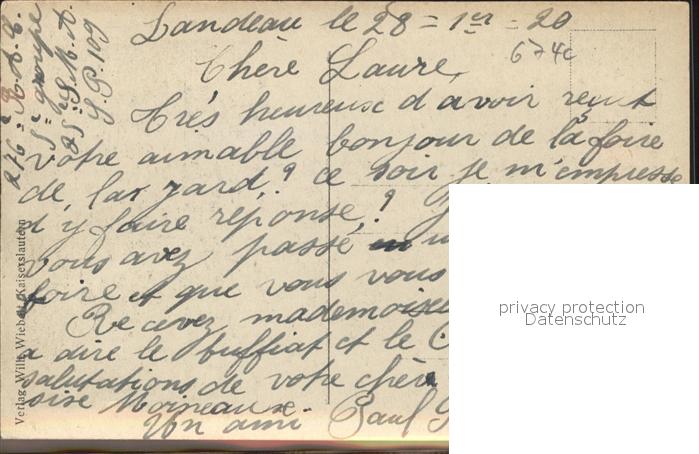 Landeau le 28 = 1er = 20
6740
Chère Laure,
très heureuse d avoir reçut
votre aimable bonjour de la foire
de, lar zard,? ce soir je m'empresse
d'y faire réponse,?
vous avez passé
foire et que vous vous
Recevez mademoiselle
a dire le buffiat et le
salutations de votre chèr
Moineaux.
Un ami Paul
276e R.A.C.
5e groupe
25e S.M.A.
S.P. 109
Verlag Willi Wiebelt, Kaiserslautern
privacy protection
Datenschutz